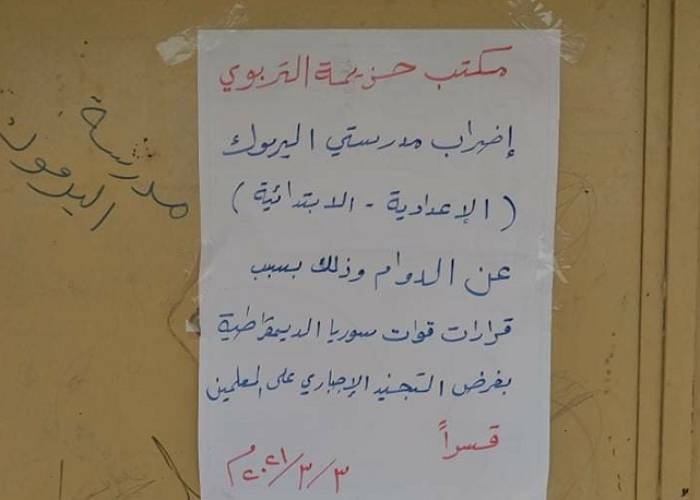 مكتب حزيمة التربوي
إضراب مدرستي اليرموك
( الإعدادية - الابتدائية )
عن الدوام وذلك بسبب
قرارات قوات سوريا الديمقراطية
بفرض التجنيد الإجباري على المعلمين
قسراً
٢٠٢١/٣/٣م
مدرسة
اليرموك